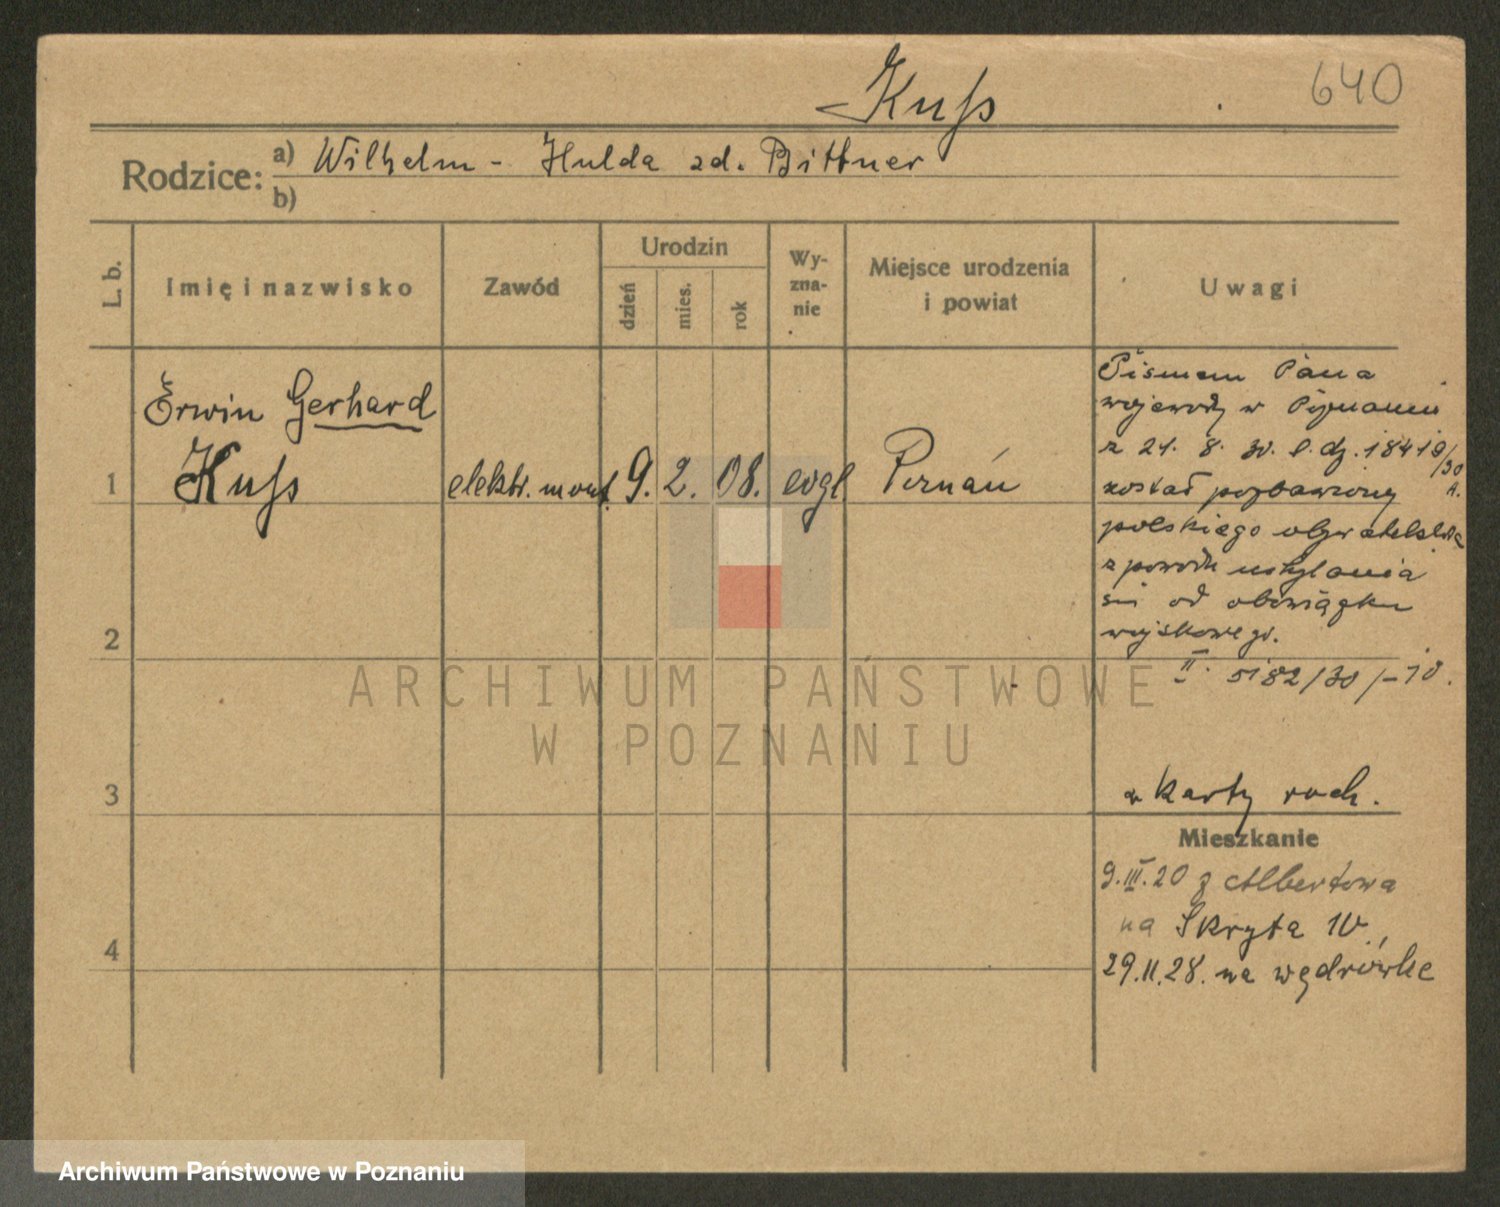 Kuss
640
Rodzice:
a) Wilhelm - Hulda zd. Bittner
b)
L. b.
Imię i nazwisko
Zawód
Urodzin
dzień
mies.
rok
Wy-
zna-
nie
Miejsce urodzenia
i powiat
Uwagi
Erwin Gerhard
1 Kuss elektr. mont. 9. 2. 08. ewgl Poznań
Pismem Pana
wojewody w Poznaniu
z 21. 8. 30. l. dz. 18419/30
został pozbawiony
polskiego obywatelstwa
z powodu uchylania
się od obowiązku
wojskowego.
II. 5182/30/-10.
2
3
z karty roch.
Mieszkanie
9.III.20 z Albertowa
na Skryta 10,
29.11.28. na wędrówkę
4
ARCHIWUM PAŃSTWOWE
W POZNANIU
Archiwum Państwowe w Poznaniu